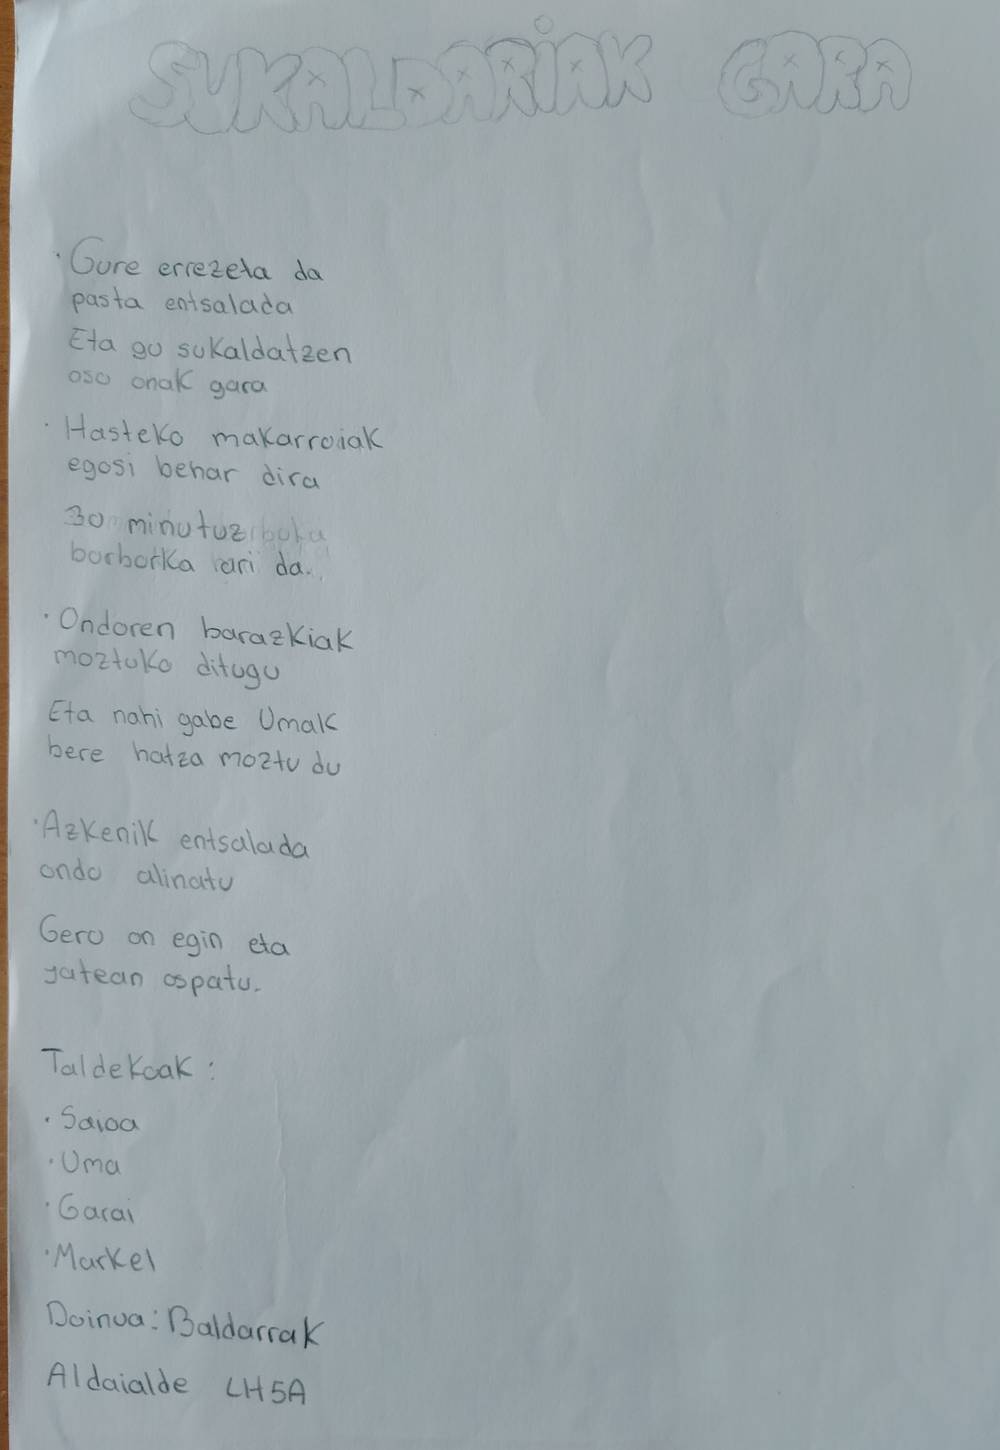 SUKALDARiAK GARA
· Gure errezeta da
pasta entsalada
Eta gu sukaldatzen
oso onak gara
· Hasteko makarroiak
egosi behar dira
30 minutuz
borborka ari da.
· Ondoren barazkiak
moztuko ditugu
Eta nahi gabe Umak
bere hatza moztu du
· Azkenik entsalada
ondo alinatu
Gero on egin eta
jatean ospatu.
Taldekoak:
· Saioa
· Uma
· Garai
· Markel
Doinua: Baldarrak
Aldaialde LH5A